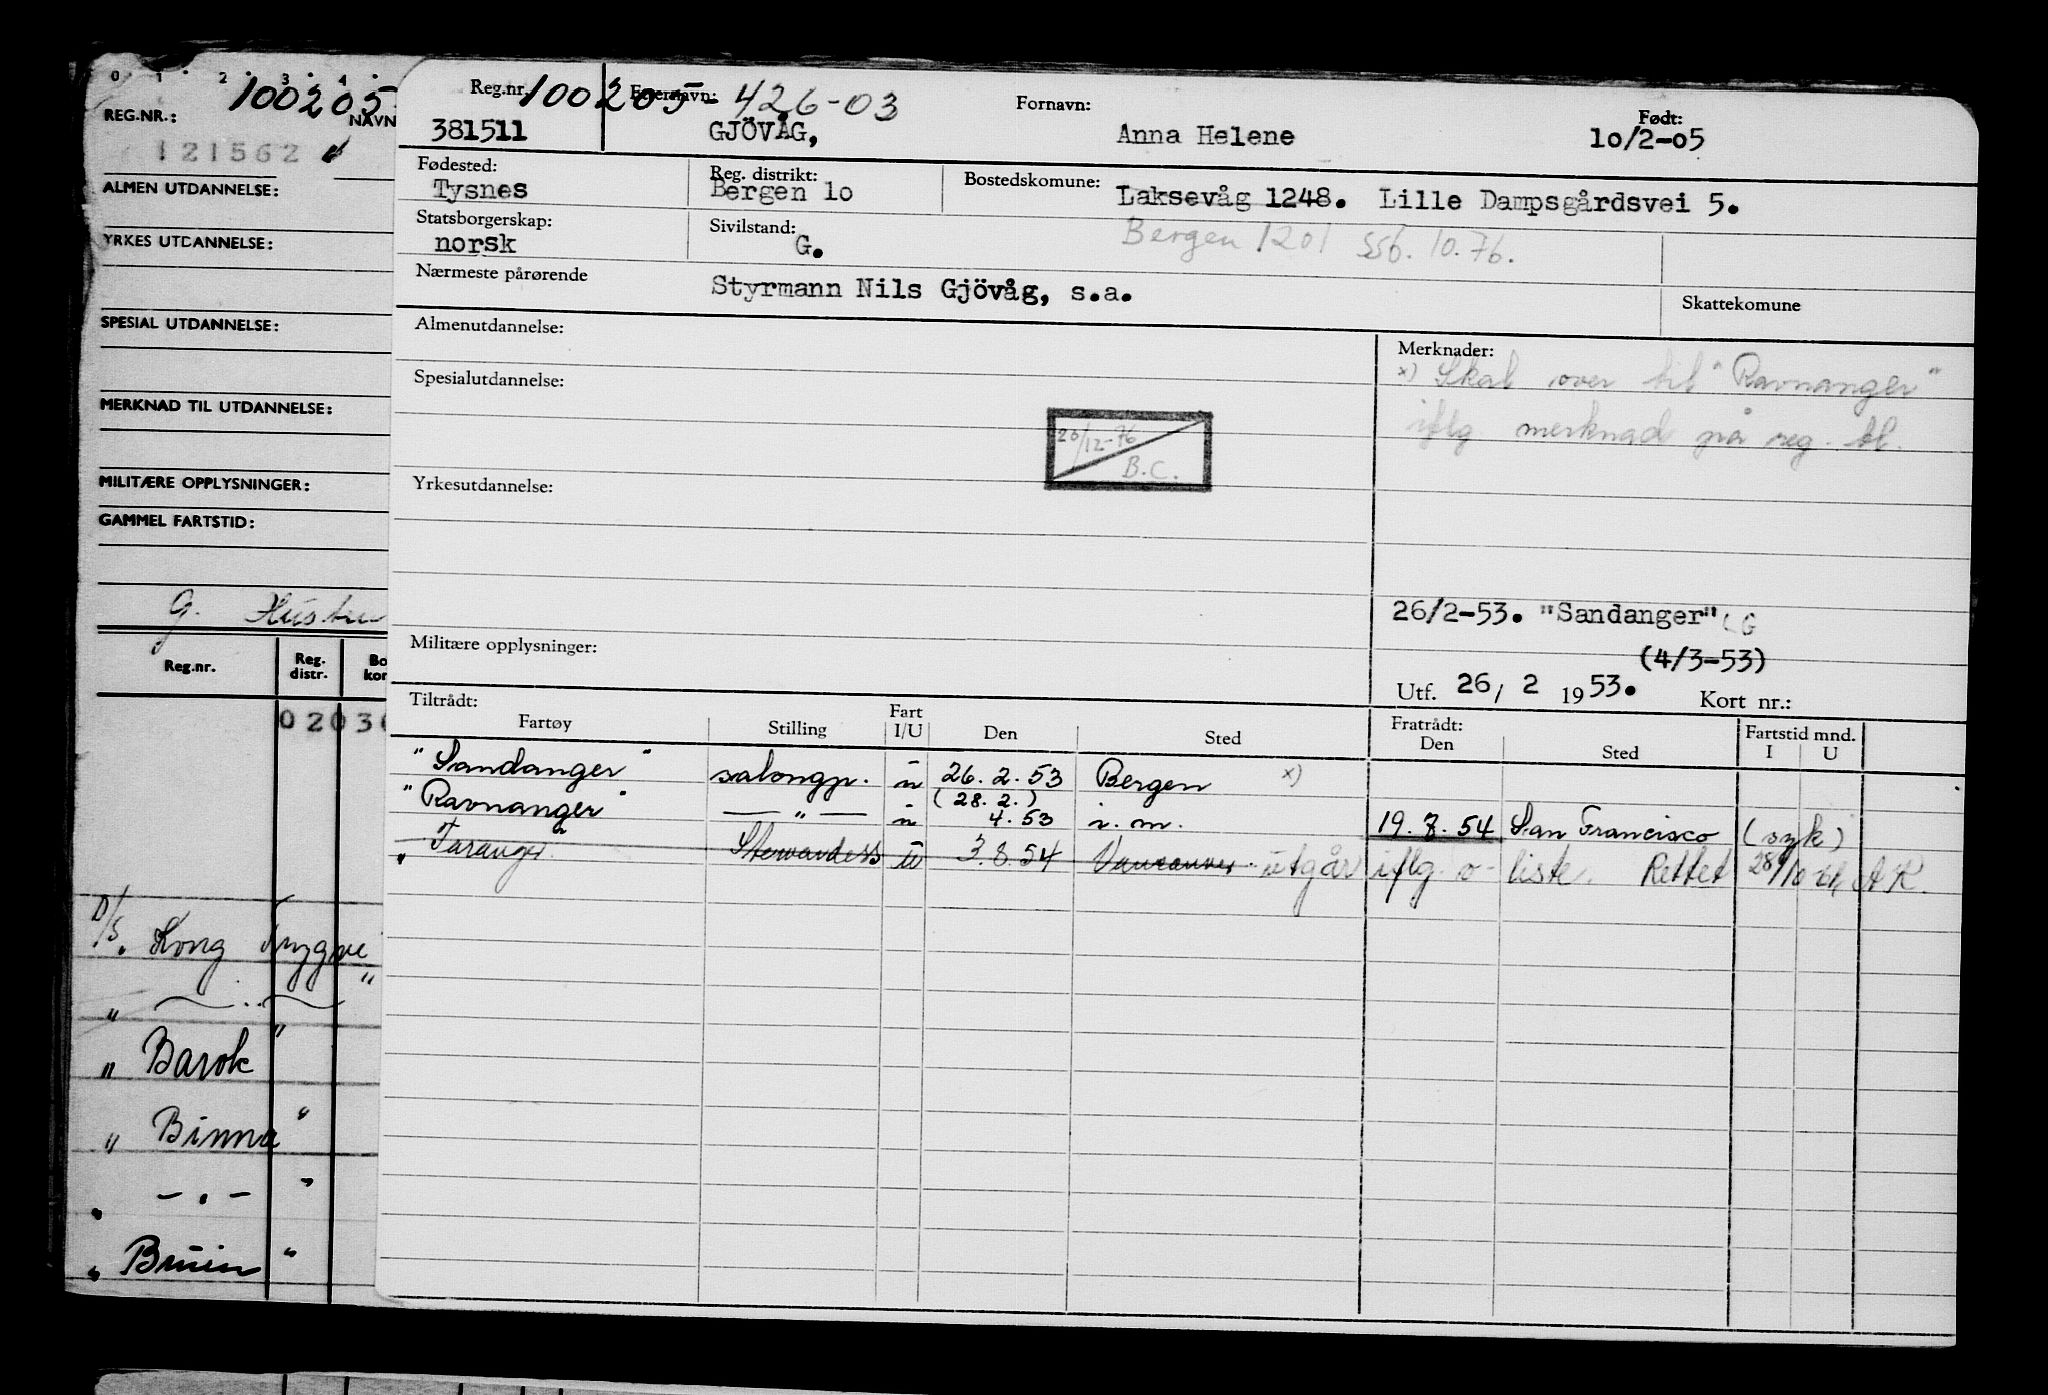 0 1 2 3 4
REG.NR.: 100205 NAVN
121562
ALMEN UTDANNELSE:
YRKES UTDANNELSE:
SPESIAL UTDANNELSE:
MERKNAD TIL UTDANNELSE:
MILITÆRE OPPLYSNINGER:
GAMMEL FARTSTID:
G. Hustru
Reg.nr. Reg. distr. Bo kor
0203
D/S. Kong Trygve "
" — " —
" Barok "
" Binna "
" — " — "
" Bruin "
Reg.nr. 100205-426-03 Etternavn: Fornavn: Født:
381511 GJÖVÅG, Anna Helene 10/2-05
Fødested: Reg. distrikt: Bostedskomune:
Tysnes Bergen 1o Laksevåg 1248. Lille Dampsgårdsvei 5.
Statsborgerskap: Sivilstand:
norsk G. Bergen 1201 ssb. 10.76.
Nærmeste pårørende Styrmann Nils Gjövåg, s.a. Skattekomune
Almenutdannelse: Merknader:
x) Skal over til "Ravnanger"
Spesialutdannelse:
iflg merknad på reg. bl.
20/12-76
B.C.
Yrkesutdannelse:
26/2-53. "Sandanger"
Militære opplysninger: (4/3-53)
Utf. 26/ 2 1953. Kort nr.:
Tiltrådt: Fratrådt: Fartstid mnd.
Fartøy Stilling Fart I/U Den Sted Den Sted I U
"Sandanger" salongp. u 26.2.53 Bergen x)
"Ravnanger" — " — u (28.2.) 4.53 i.m. 19.7.54 San Francisco (syk)
" Taranger" Stewardess u 3.8.54 Vancouver utgår iflg. o-liste. Rettet 28/10-64 A K.